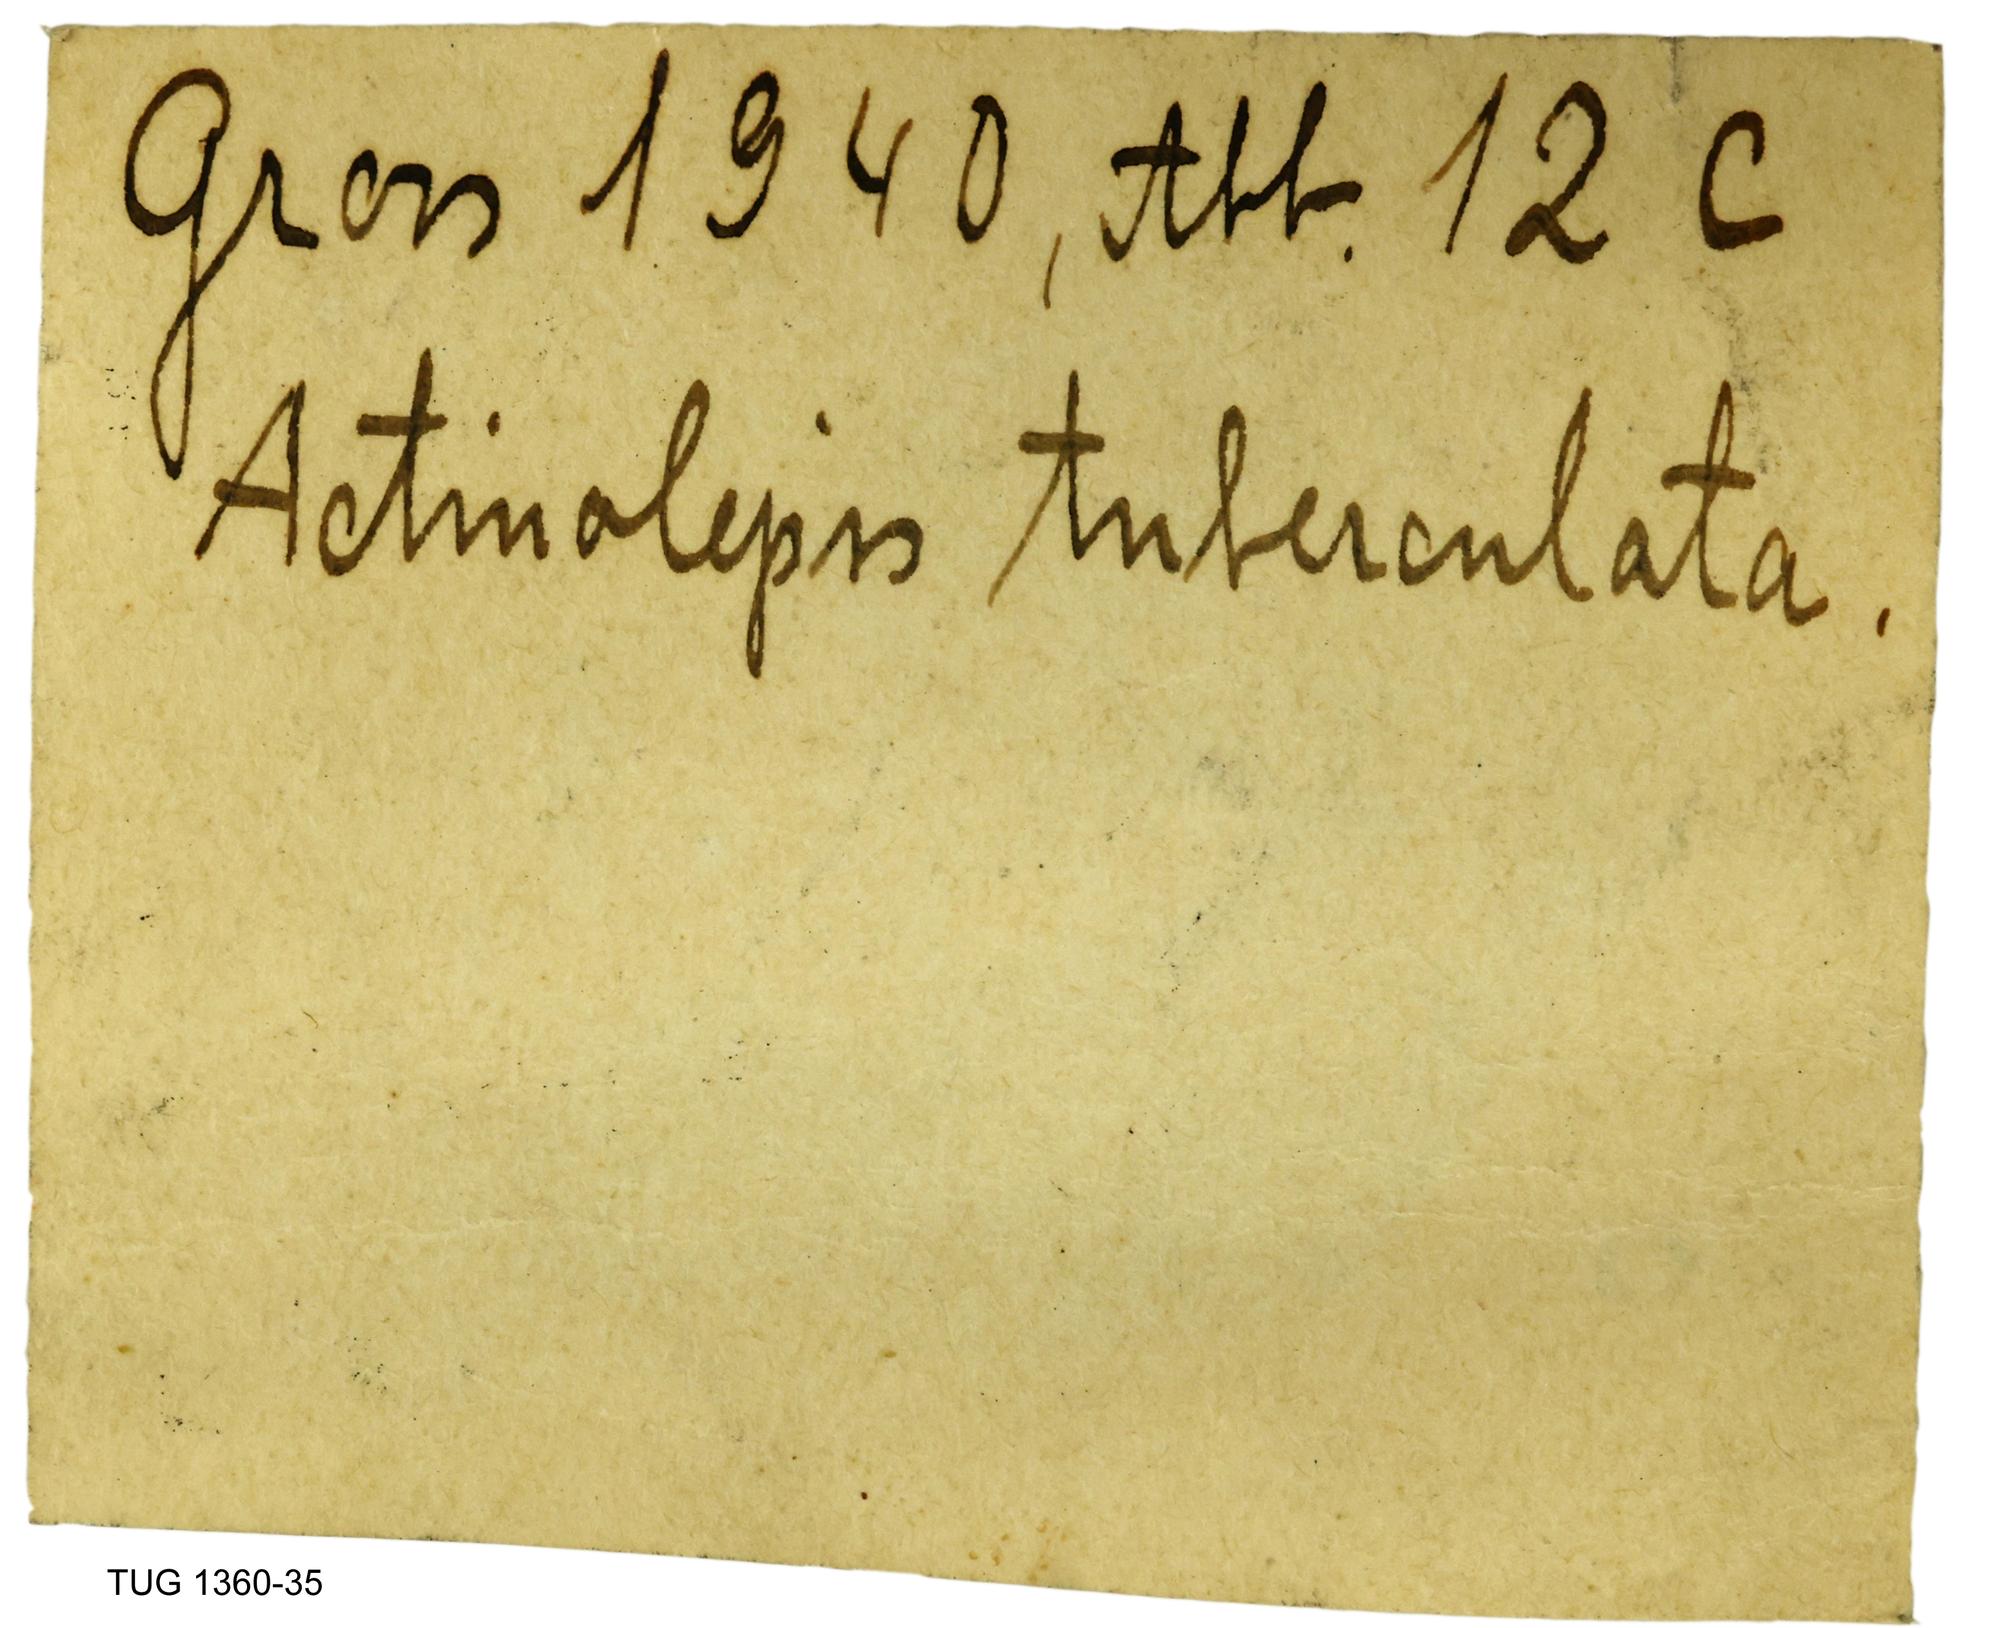 Gross 1940, Abb. 12 C
Actinolepis tuberculata.
TUG 1360-35